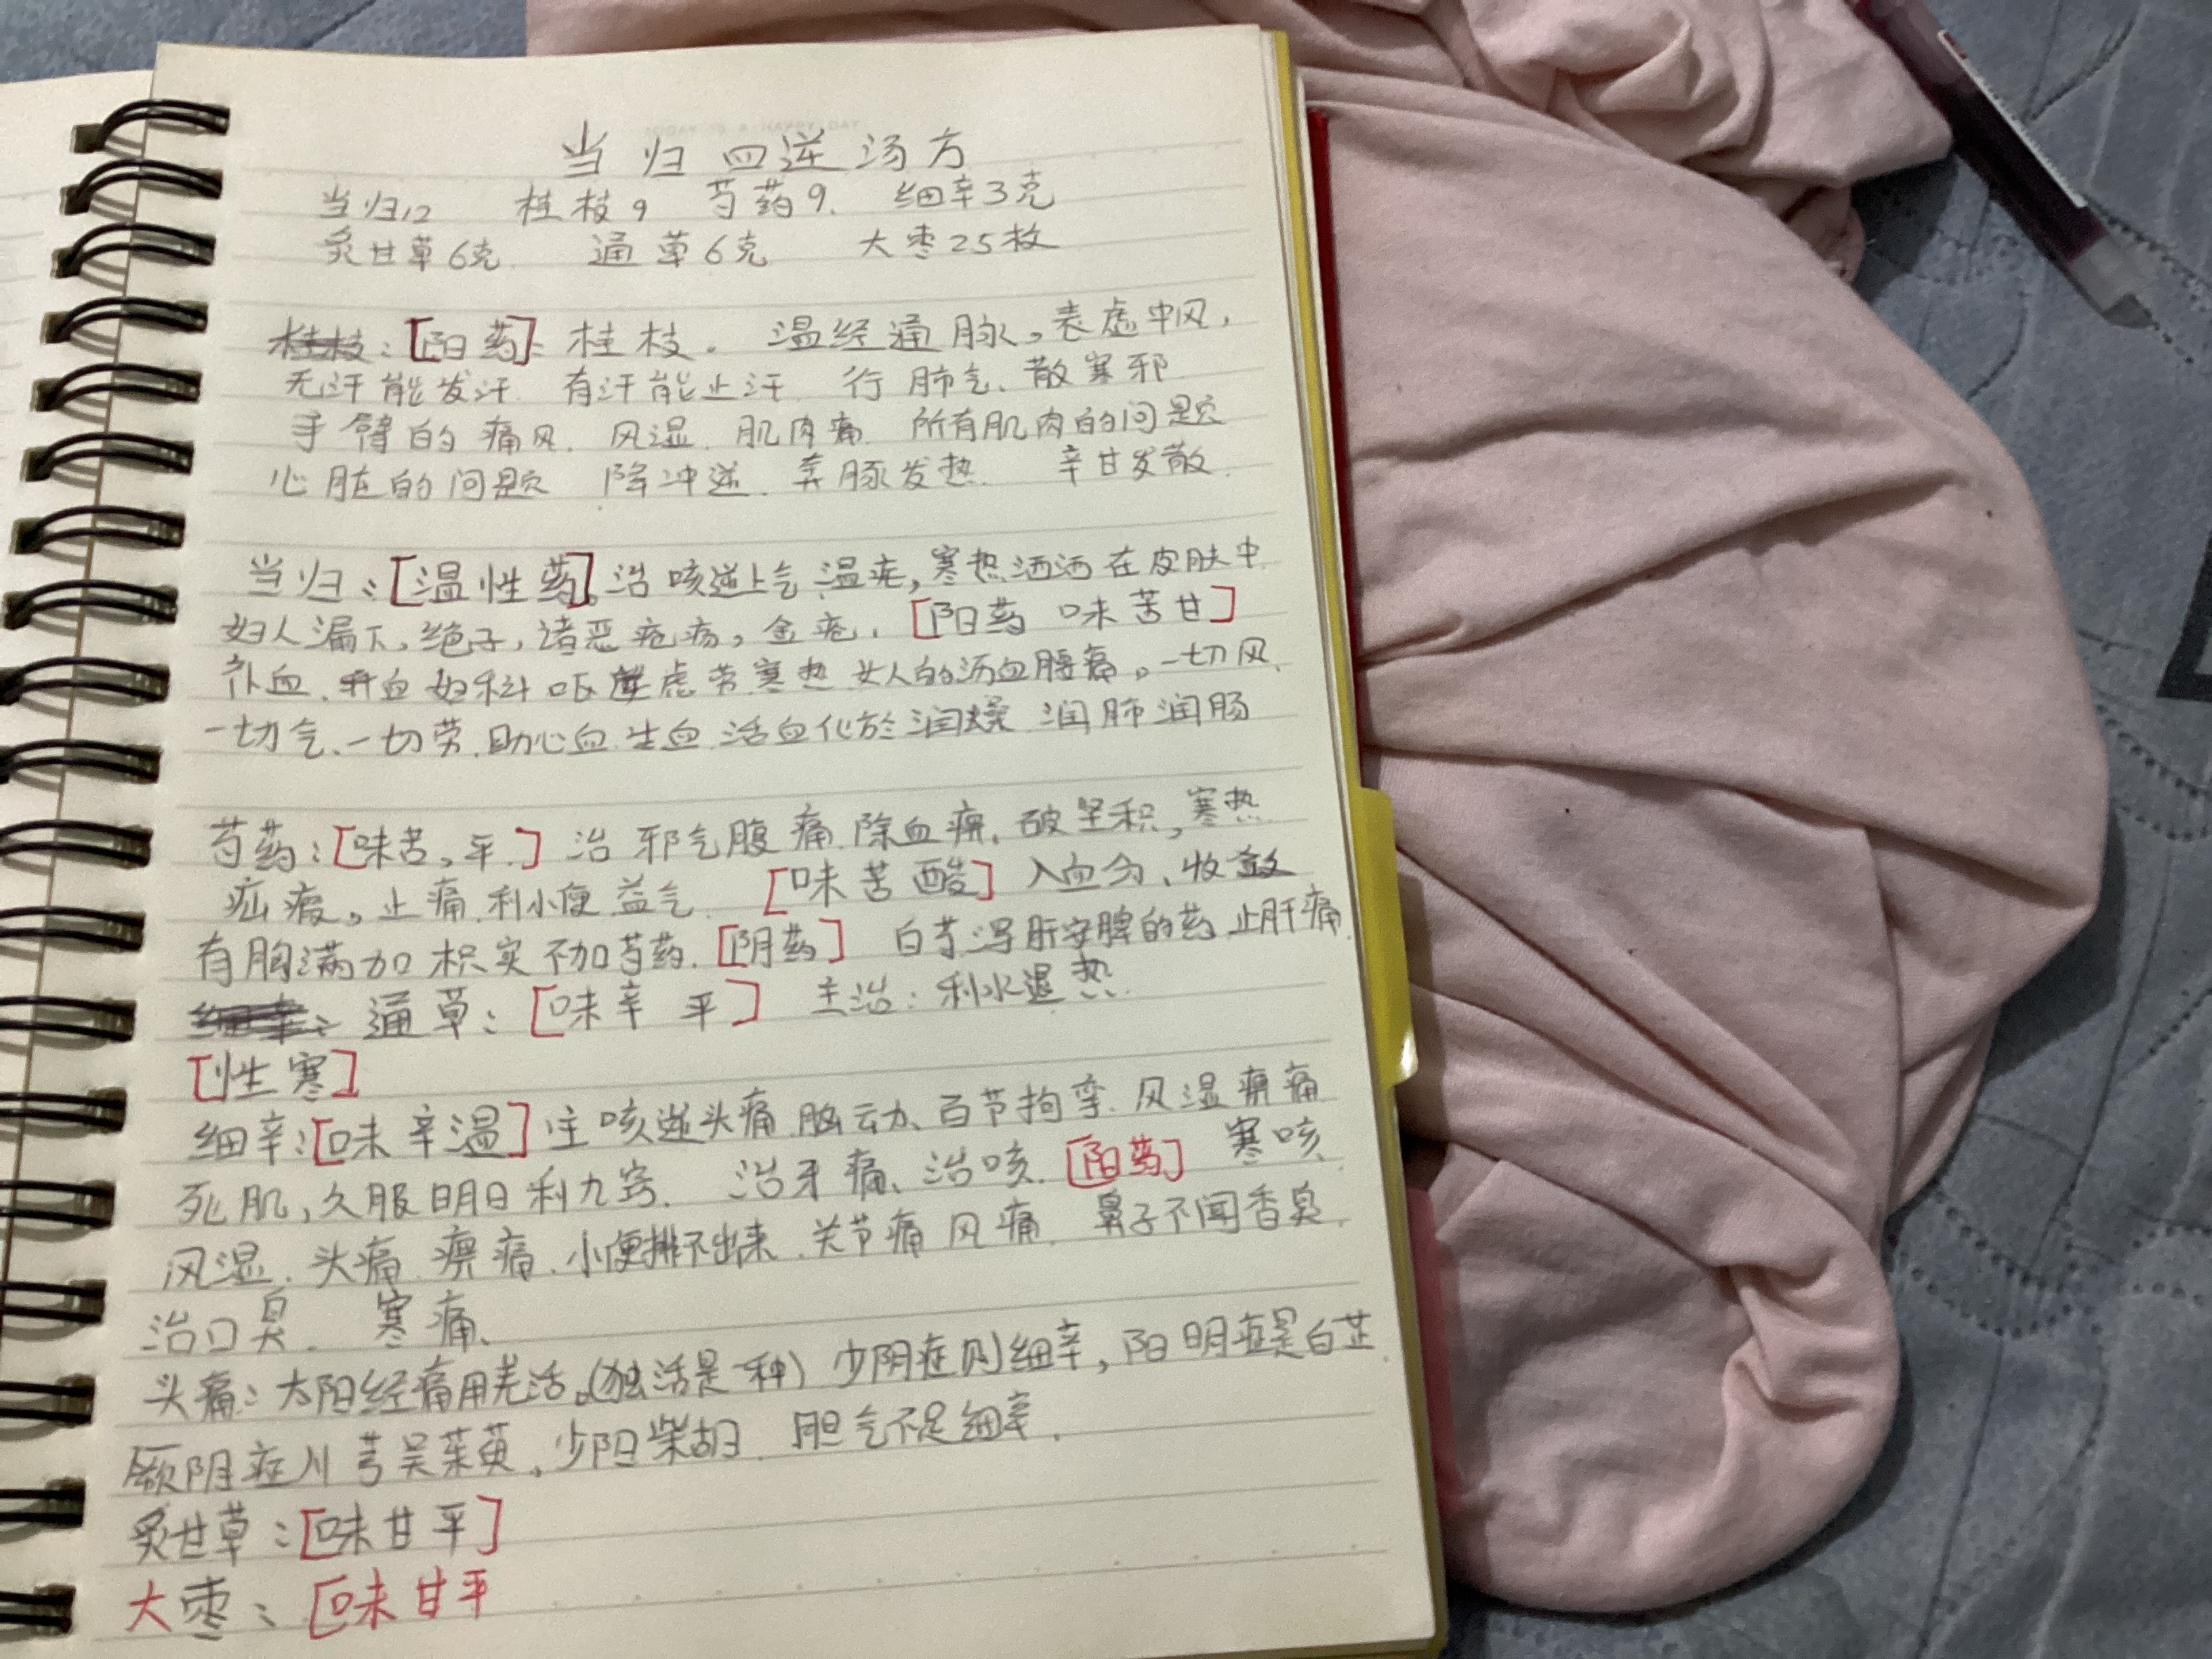 当归四逆汤方
当归12 桂枝9 芍药9. 细辛3克
炙甘草6克. 通草6克 大枣25枚
桂枝:[阳药]:桂枝。温经通脉。表虚中风,
无汗能发汗. 有汗能止汗. 行肺气. 散寒邪
手臂的痛风. 风湿. 肌肉痛. 所有肌肉的问题
心脏的问题 降冲逆. 奔豚发热. 辛甘发散.
当归:[温性药]。治咳逆上气.温疟,寒热洒洒在皮肤中
妇人漏下,绝子,诸恶疮疡。金疮. [阳药 味苦甘]
补血. 妇科 呕 虚劳寒热 女人的 血腰痛。一切风.
一切气、一切劳.助心血.生血.活血化於润燥 润肺润肠
芍药:[味苦。平.] 治邪气腹痛.除血痹.破坚积,寒热
疝瘕。止痛.利小便.益气. [味苦酸] 入血分、收敛
有胸满加枳实不加芍药.[阴药] 白芍泻肝安脾的药.止肝痛.
通草:[味辛 平] 主治:利水退热.
[性寒]
细辛:[味辛温]主咳逆头痛.脑动、百节拘挛.风湿痹痛
死肌,久服明目利九窍. 治牙痛、治咳.[阳药] 寒咳.
风湿.头痛.痹痛.小便排不出来.关节痛 风痛. 鼻子不闻香臭.
治口臭. 寒痛.
头痛:太阳经痛用羌活。(独活是一种) 少阴症则细辛,阳明症是白芷.
厥阴症川芎吴茱萸.少阳柴胡. 胆气不足细辛.
炙甘草:[味甘平]
大枣:[味甘平